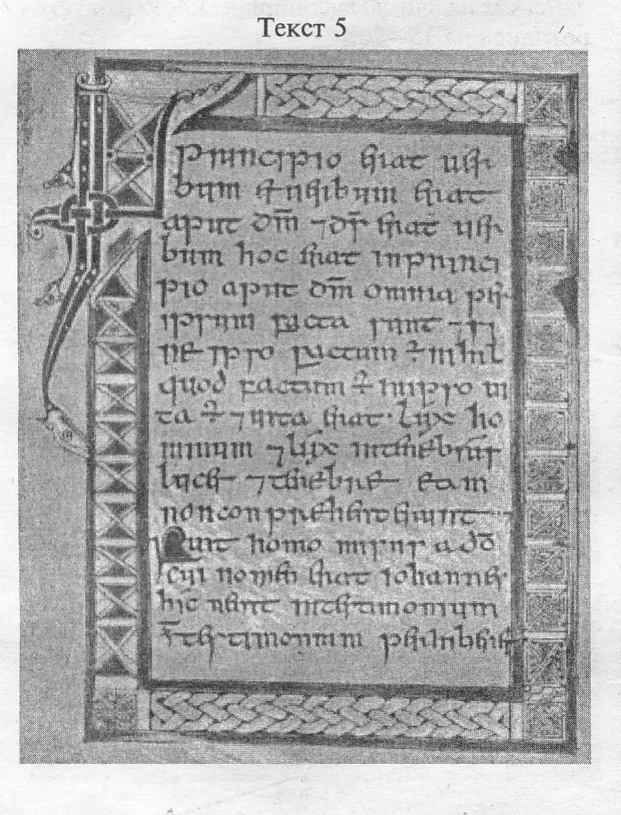 Текст 5
INprincipio erat uer
bum et uerbum erat
aput dm̄ ⁊ ds̄ erat uer
bum hoc erat inprinci
pio aput dm̄ omnia per
ipsum facta sunt ⁊ si
ne ipso factum ÷ nihil
quod factum ÷ inipso ui
ta ÷ ⁊ uita erat · lux ho
minum ⁊ lux intenebris
lucet ⁊ tenebre eam
non conprehenderunt
Fuit homo misus a dō
cui nomen erat iohannes
hic uenit intestimonium
testimonium